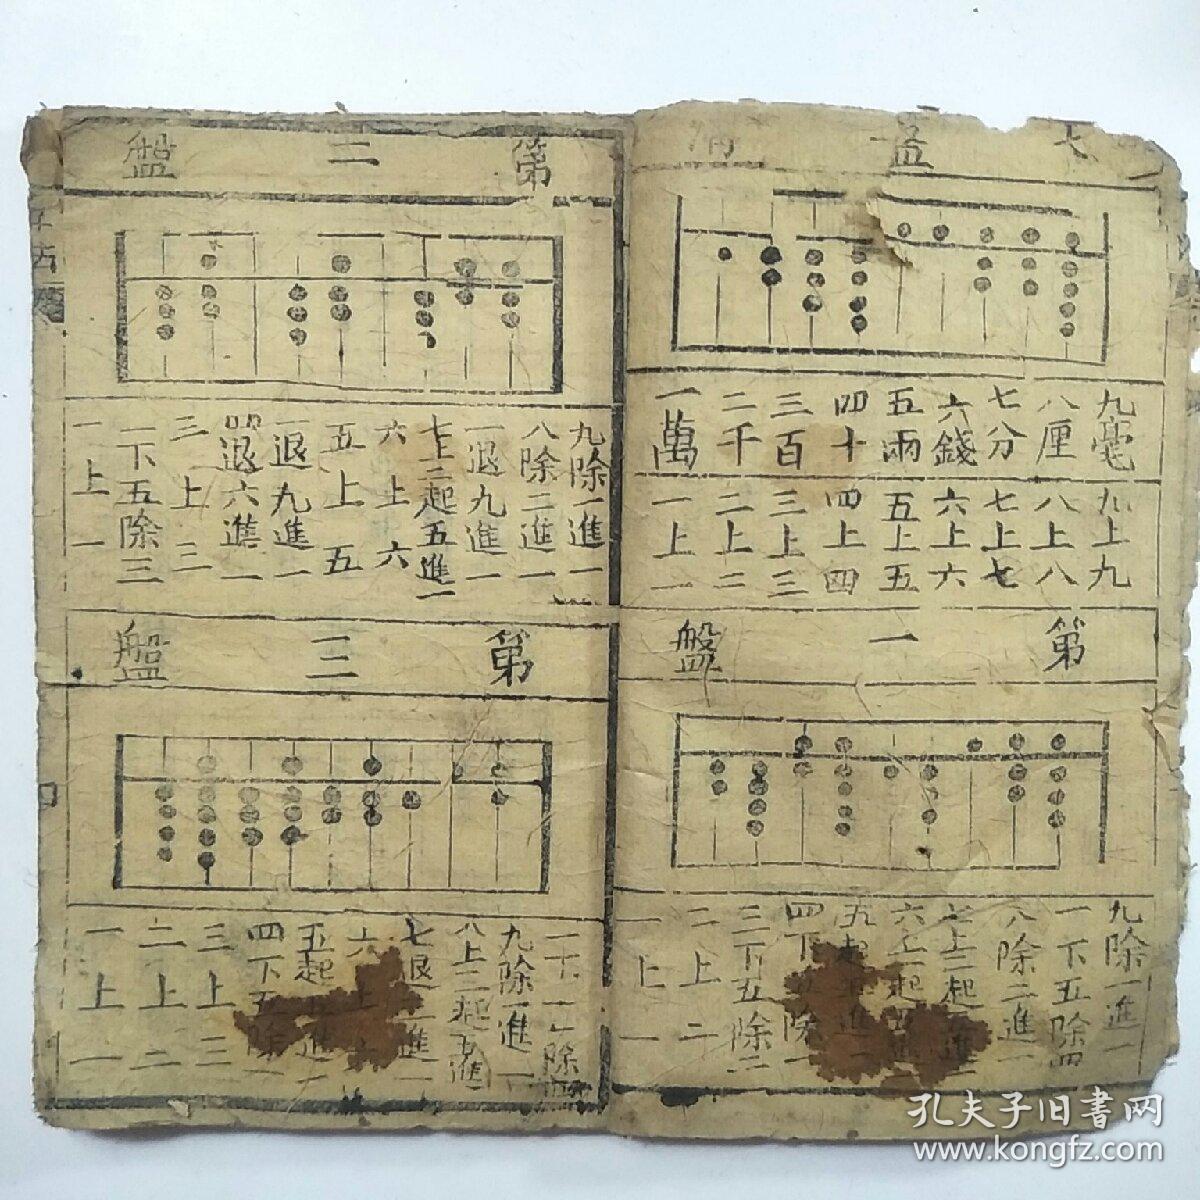 七 盤
九毫
八厘
七分
六錢
五兩
四十
三百
二千
一萬
九上九
八上八
七上七
六上六
五上五
四上四
三上三
二上二
一上一
第一盤
九除一進一
一下五除四
八除二進一
七上二起五進一
六上一起五進一
五起五進一
四下五除一
三下五除二
二上二
一上一
第二盤
九除一進一
八除二進一
一退九進一
七上二起五進一
六上六
五上五
一退九進一
四退六進一
三上三
二下五除三
一上一
第三盤
一下五除四
九除一進一
八上三起五進一
七退三進一
六上六
五起五進一
四下五除一
三上三
二上二
一上一
孔夫子旧書网
www.kongfz.com